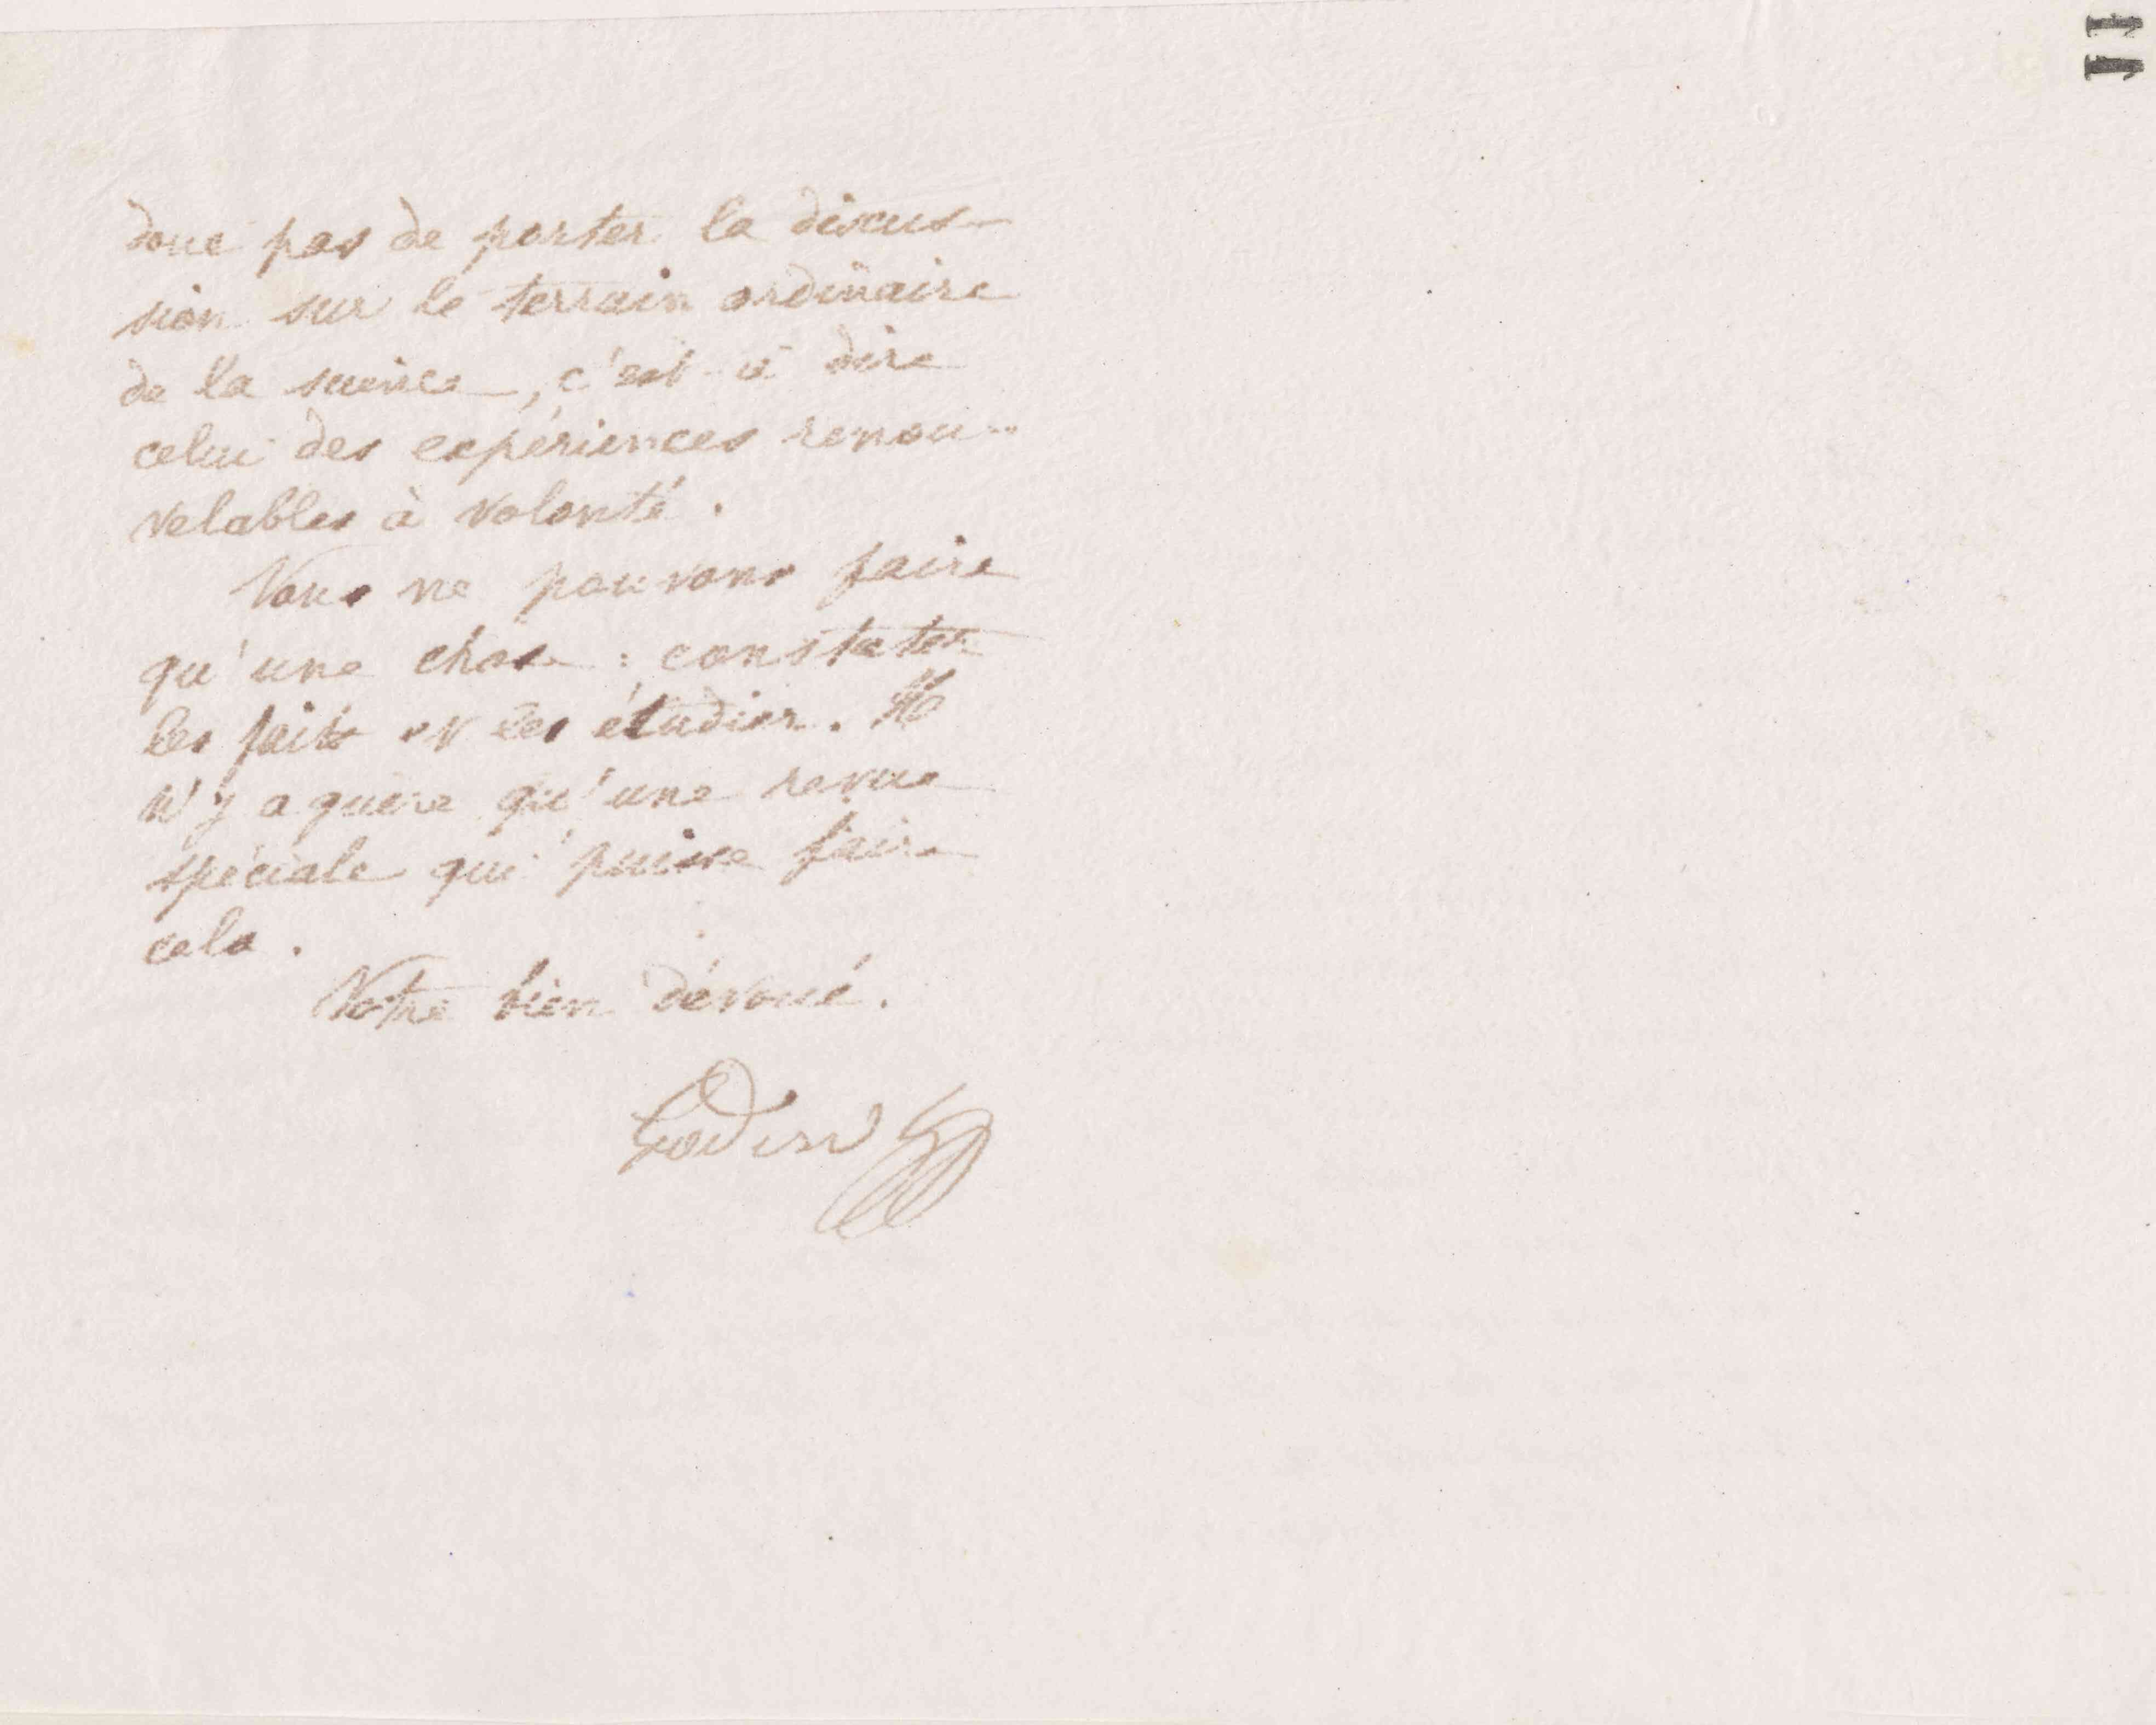 donc pas de porter la discus-
sion sur le terrain ordinaire
de la science, c'est-à dire
celui des expériences renou-
velables à volonté.
Nous ne pouvons faire
qu'une chose : constater
les faits et les étudier. Il
n'y a guère qu'une revue
spéciale qui puisse faire
cela.
Votre bien dévoué.
Godin